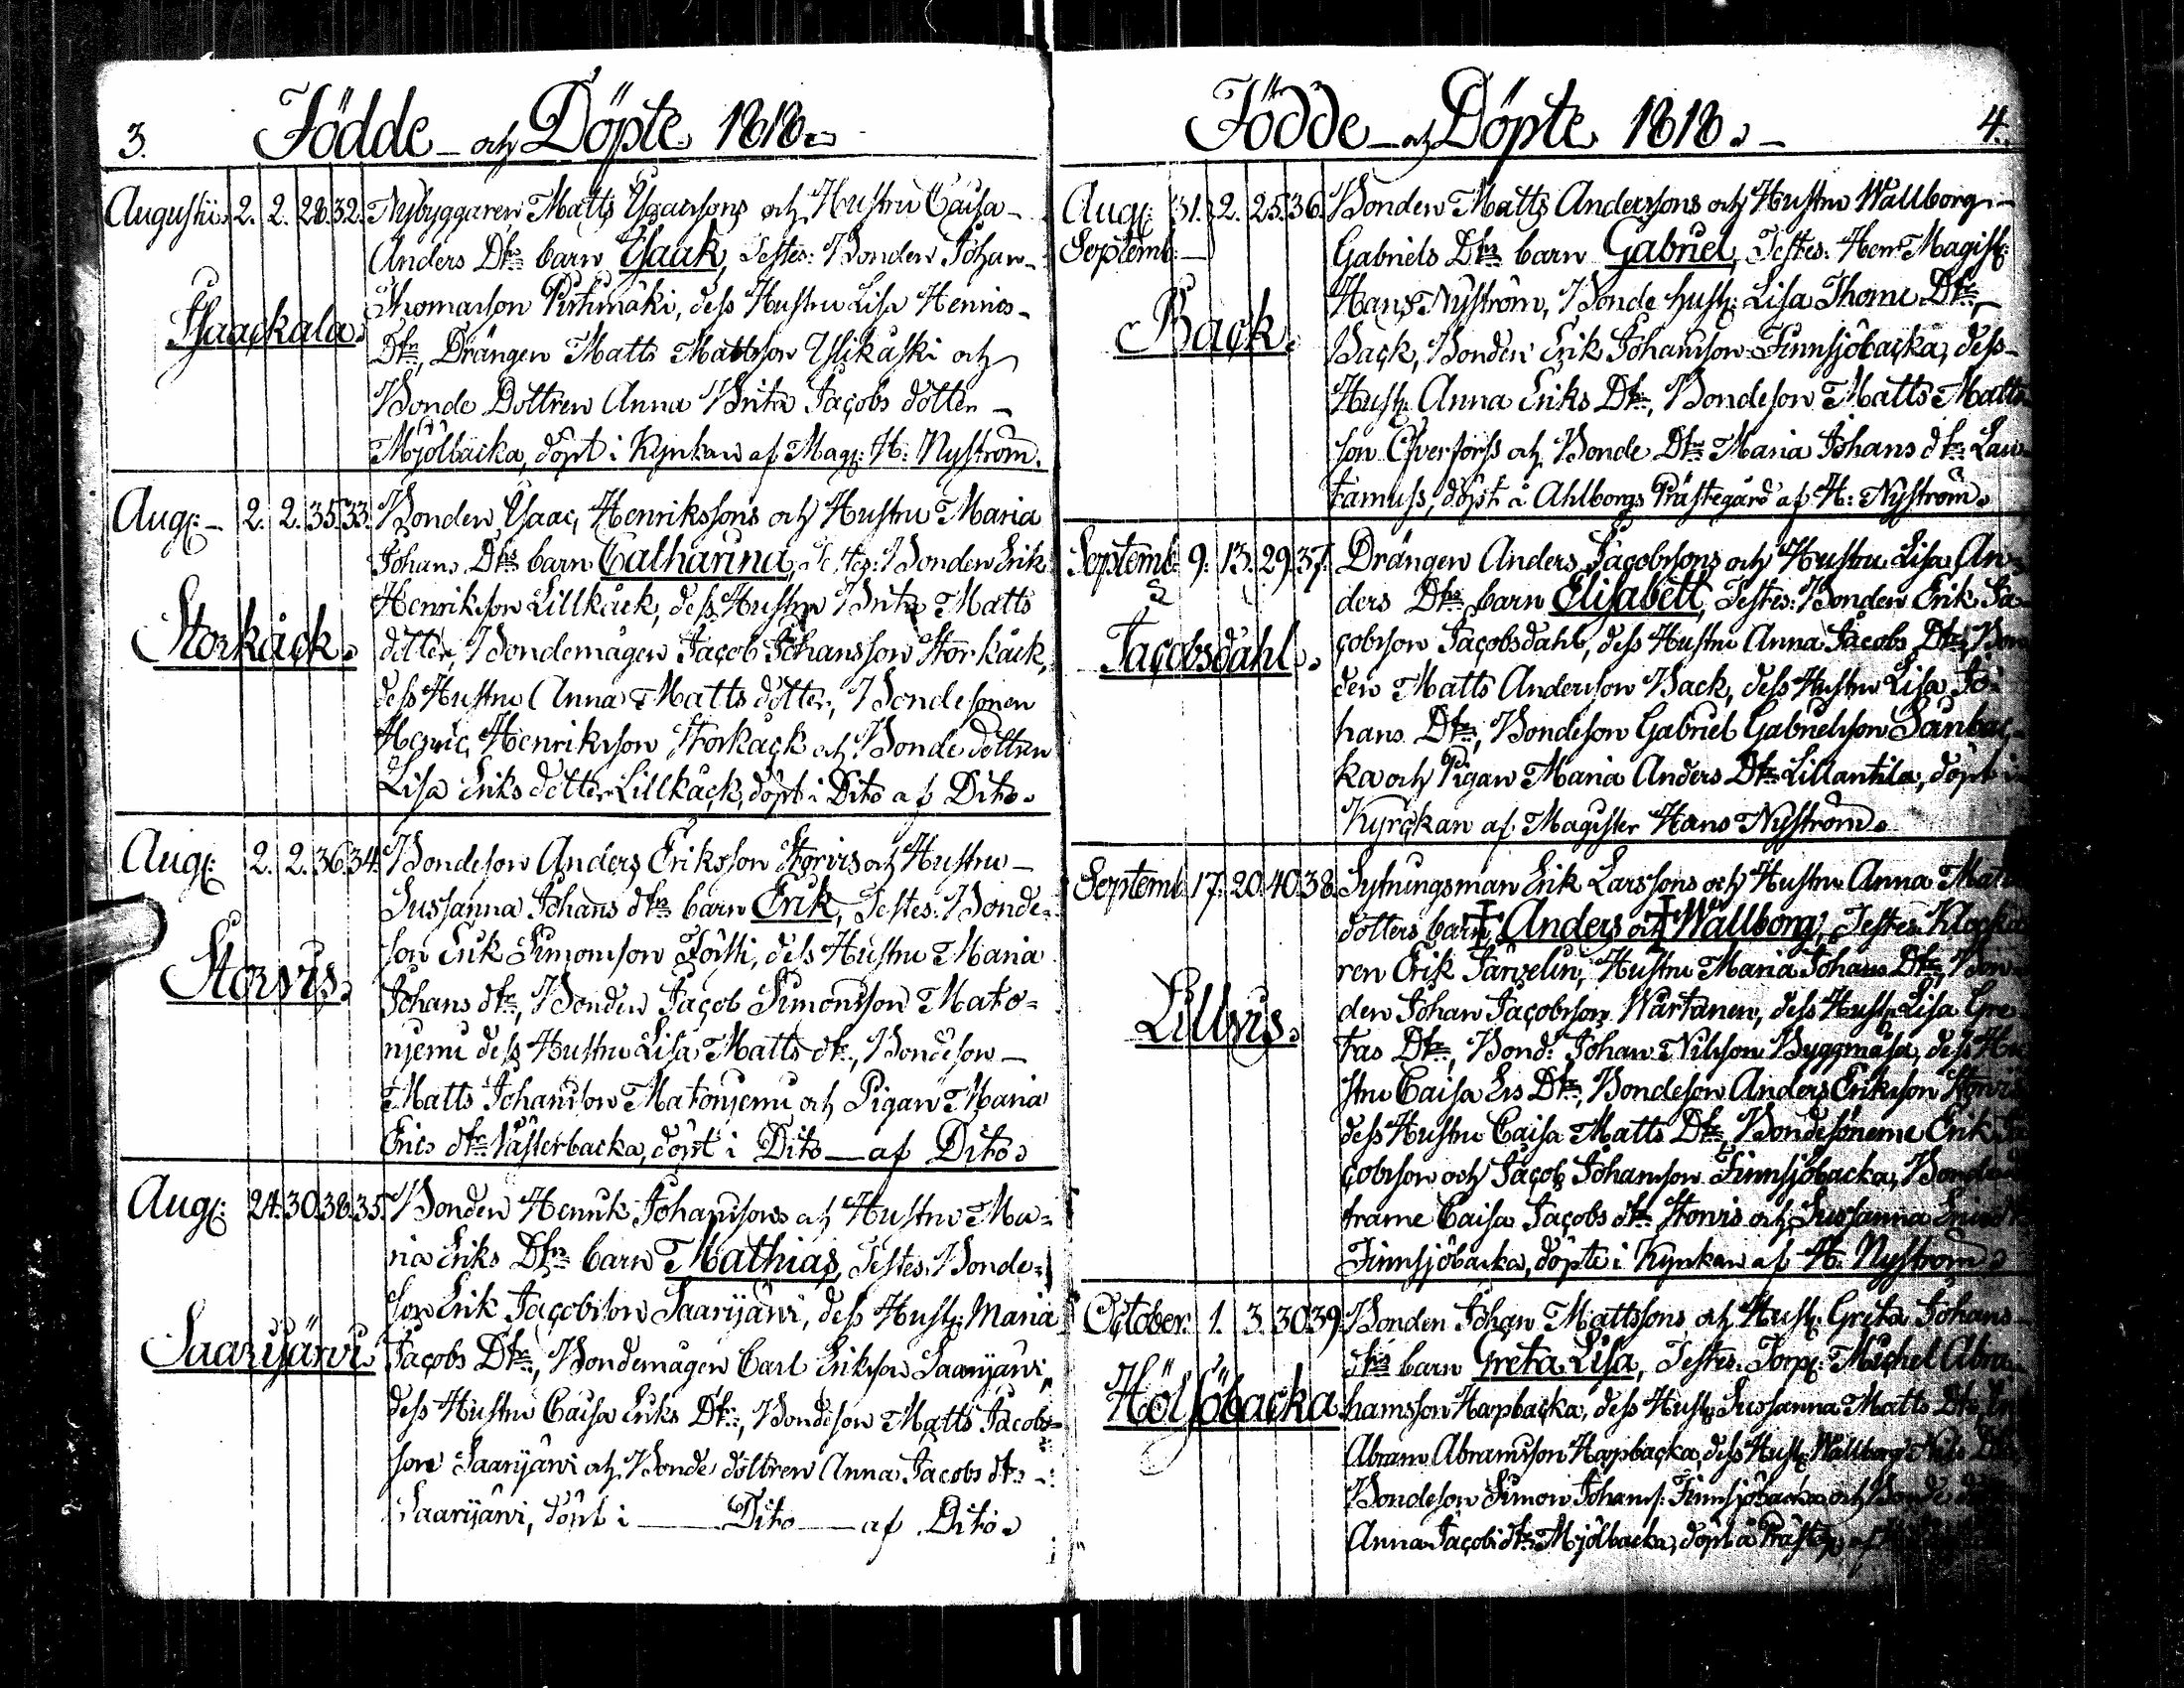 3. Födde och Döpte 1818.
Augustii. 2. 2. 28. 32. Nybyggaren Matts Ysacssons och Hustru Caisa
Anders Dtrs barn Ysaak, Testes: Bonden Johan
Thomasson Pirtimäki, dess Hustru Lisa Henrics
Ysaackala.
Dtr, Drängen Matts Mattsson Ylikäski och
Bonde Dottren Anna Brita Jacobs dotter
Mjölbacka, döpt i Kyrkan af Mag: H: Nyström.
Aug: 2. 2. 35. 33. Bonden Ysaac Henrikssons och Hustru Maria
Johans Dtrs barn Catharina, Testes: Bonden Erik
Henriksson Lillkäck, dess Hustru Brita Matts
Storkäck.
dotter, Bondemågen Jacob Johansson Storkäck,
dess Hustru Anna Matts dotter, Bondesonen
Henric Henriksson Storkäck och Bonde dottren
Lisa Eriks dotter Lillkäck, döpt i Dito af Dito.
Aug: 2. 2. 36. 34. Bondeson Anders Eriksson Storvis och Hustru
Sussanna Johans dtrs barn Erik, Testes: Bonde-
son Erik Simonsson Förtti, dess Hustru Maria
Storvis.
Johans dtr, Bonden Jacob Simonsson Mato-
njemi dess Hustru Lisa Matts dtr, Bondeson
Matts Johansson Matonjemi och Pigan Maria
Erics dtr Västerbacka, döpt i Dito af Dito.
Aug: 24. 30. 38. 35. Bonden Henrik Johanssons och Hustru Ma-
ria Eriks Dtrs barn Mathias, Testes: Bonde-
son Erik Jacobsson Saarijärvi, dess Hust: Maria
Saarijärvi
Jacobs Dtr, Bondemågen Carl Eriksson Saarijärvi
dess Hustru Caisa Eriks Dtr, Bondeson Matts Jacobs-
son Saarijärvi och Bonde dottren Anna Jacobs dtr
Saarijärvi, döpt i Dito af Dito.
Födde och Döpte 1818. 4.
Aug: 31. 2. 25. 36. Bonden Matts Anderssons och Hustru Wallborg
Septemb:
Gabriels Dtrs barn Gabriel, Testes: Herr Magist:
Hans Nyström, Bonde hust: Lisa Thom: Dtr
Back.
Back, Bonden Erik Johansson Finnsjöbacka, dess
Hust: Anna Eriks Dtr, Bondeson Matts Matts
son Öfverforss och Bonde Dtr Maria Johans dtr Lau
tamuss, döpt å Ahlborgs Prästegård af H: Nyström.
Septemb: 9. 13. 29. 37. Drängen Anders Jacobssons och Hustru Lisa An-
ders Dtrs barn Elisabett, Testes: Bonden Erik Ja-
Jacobsdahl.
cobsson Jacobsdahl, dess Hustru Anna Jacobs Dtr, Bon
den Matts Andersson Back, dess Hustru Lisa Jo-
hans Dtr, Bondeson Gabriel Gabrielsson Saubac-
ka och Pigan Maria Anders Dtr Lillantila, döpt i
Kyrckan af Magister Hans Nyström.
Septemb: 17. 20. 40. 38. Sytningsman Erik Larssons och Hustru Anna Matts
dotters barn, Anders och Wallborg, Testes: Klocka
ren Erik Järvelin, Hustru Maria Johans Dtr, Bon
Lillvis.
den Johan Jacobsson Wärtanen, dess Hust: Lisa Gre
tas Dtr, Bond: Johan Nilsson Byggmäsa, dess Hu
stru Caisa Ers Dtr, Bondeson Anders Eriksson Storvis
dess Hustru Caisa Matts Dtr, Bondesönerne Erik Ja
cobsson och Jacob Johansson Finnsjöbacka, Bondedött
rarne Caisa Jacobs dtr Storvis och Sussanna Erics dtr
Finnsjöbacka, döpte i Kyrkan af H: Nyström.
October. 1. 3. 30. 39. Bonden Johan Mattssons och Hust: Greta Johans
dtrs barn Greta Lisa, Testes: Torp: Michel Abra
Höljöbacka
hamsson Hapbacka, dess Hust: Sussanna Matts Dtr
Abram Abramsson Hapbacka, dess Hust: Wallborg Nils Dtr
Bondeson Simon Johans: Finnsjöbacka och Bonde
Anna Jacobs dtr Mjölbacka, döpt å Präst: af